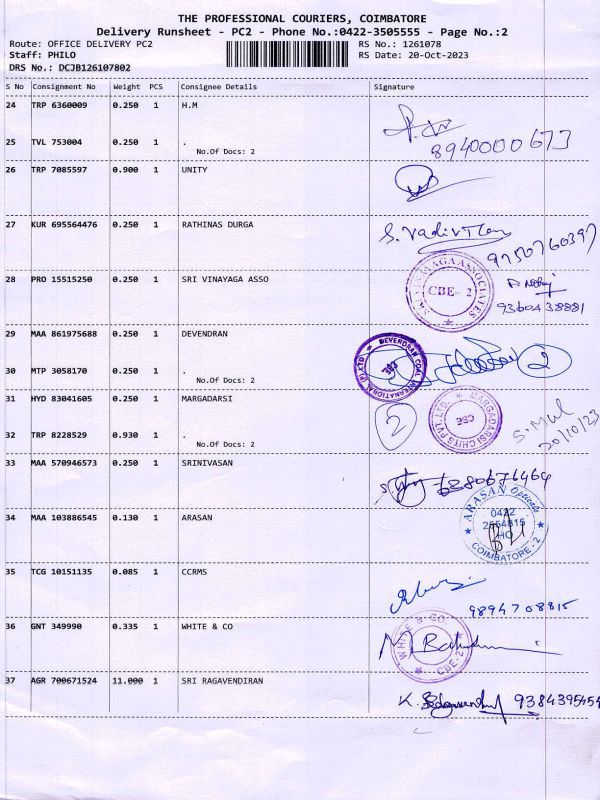 THE PROFESSIONAL COURIERS, COIMBATORE
Delivery Runsheet - PC2 - Phone No.:0422-3505555 - Page No.:2
Route: OFFICE DELIVERY PC2 RS No.: 1261078
Staff: PHILO RS Date: 20-Oct-2023
DRS No.: DCJB126107802
S No Consignment No Weight PCS Consignee Details Signature
24 TRP 6360009 0.250 1 H.M
25 TVL 753004 0.250 1 .
8940000673
No.Of Docs: 2
26 TRP 7085597 0.900 1 UNITY
27 KUR 695564476 0.250 1 RATHINAS DURGA
S. Vadivelan
9750760397
28 PRO 15515250 0.250 1 SRI VINAYAGA ASSO
SRI VINAYAGA ASSOCIATES
CBE-2
9360438881
29 MAA 861975688 0.250 1 DEVENDRAN
DEVENDRAN COAL INTERNATIONAL (P) LTD
2
30 MTP 3058170 0.250 1 .
No.Of Docs: 2
31 HYD 83041605 0.250 1 MARGADARSI
2
MARGADARSI CHITS PVT. LTD.
CBE
20/10/23
32 TRP 8228529 0.930 1 .
No.Of Docs: 2
33 MAA 570946573 0.250 1 SRINIVASAN
6380676464
34 MAA 103886545 0.130 1 ARASAN
ARASAN Opticals
0422
2554815
HO
COIMBATORE-2
35 TCG 10151135 0.085 1 CCRMS
9894708815
36 GNT 349990 0.335 1 WHITE & CO
WHITE & CO.
CBE-2
37 AGR 700671524 11.000 1 SRI RAGAVENDIRAN
9384395454